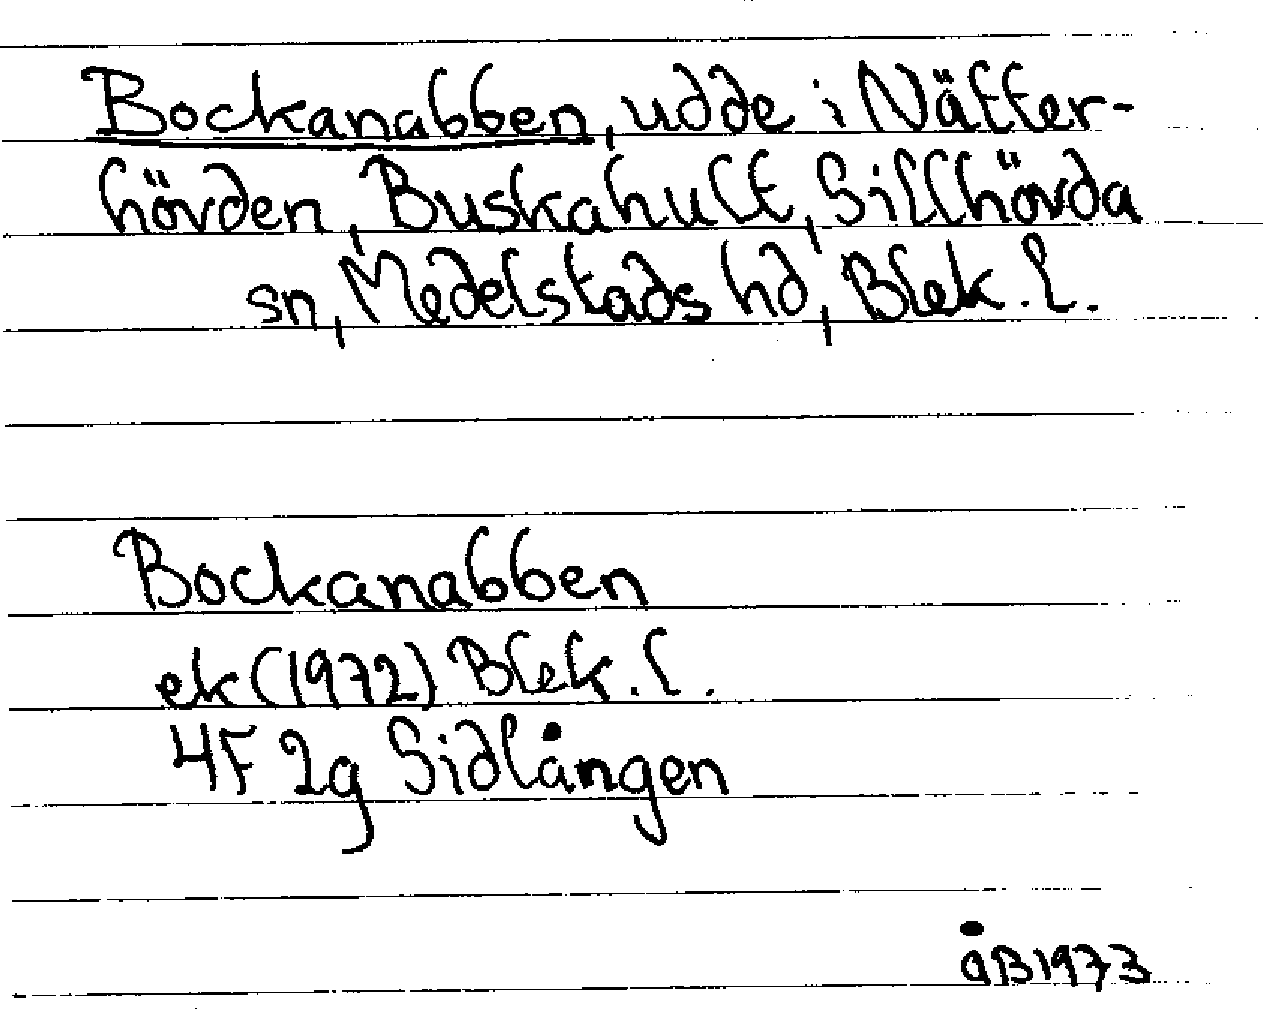 Bockanabben, udde i Nätter-
hörden, Buskahult, Sillhörda
sn, Medelstads hd, Blek. l.
Bockanabben
ek (1972) Blek. l.
4F 2g Sidlången
åB 1973